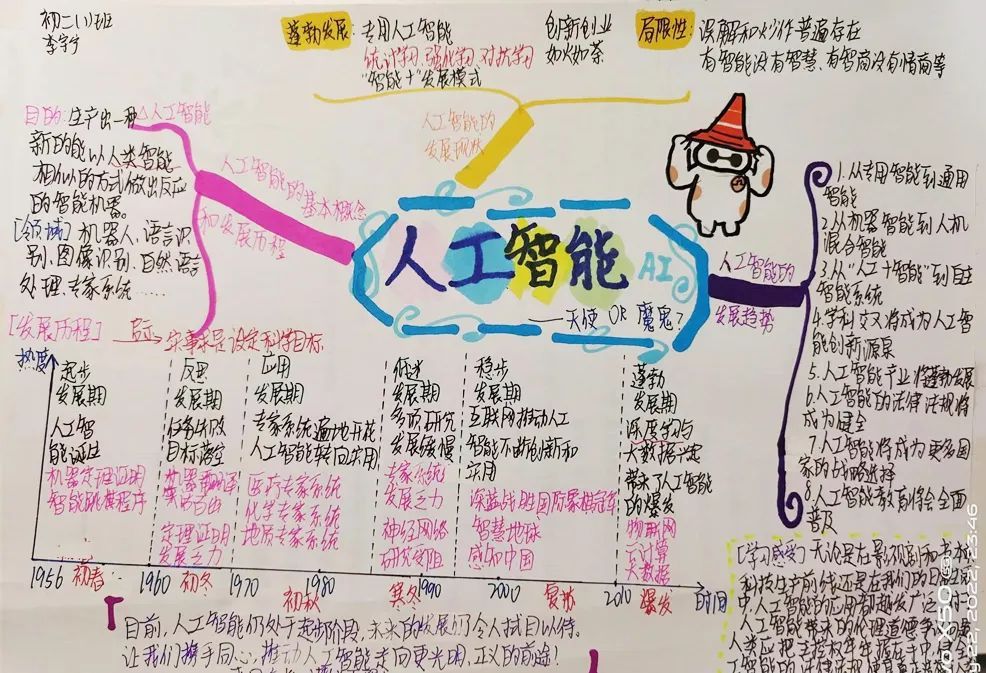 初二(1)班
李宇宁
蓬勃发展:专用人工智能
统计学习、强化学习、对抗学习
"智能+"发展模式
创新创业
如火如荼
局限性:误解和炒作普遍存在
有智能没有智慧、有智商没有情商等
人工智能的
发展现状
△人工智能
目的:生产出一种
新的能以人类智能
相似的方式做出反应
的智能机器。
[领域]机器人、语言识
别、图像识别、自然语言
处理、专家系统……
人工智能的基本概念
和发展历程
人工智能
AI
——天使 OR 魔鬼?
人工智能的
发展趋势
1.从专用智能到通用
智能
2.从机器智能到人机
混合智能
3.从"人工+智能"到自主
智能系统
4.学科交叉将成为人工智
能创新源泉
5.人工智能产业将蓬勃发展
6.人工智能的法律法规将
成为健全
7.人工智能将成为更多国
家的战略选择
8.人工智能教育将会全面
普及
[发展历程]
实事求是设定科学目标
热度
起步
发展期
人工智
能诞生
机器定理证明
智能跳棋程序
反思
发展期
任务失败
目标落空
机器翻译
笑话百出
定理证明
发展乏力
应用
发展期
专家系统遍地开花
人工智能转向实用
医疗专家系统
化学专家系统
地质专家系统
低迷
发展期
多项研究
发展缓慢
专家系统
发展乏力
神经网络
研究受阻
稳步
发展期
互联网推动人工
智能不断创新和
实用
深蓝战胜国际象棋冠军
智慧地球
感知中国
蓬勃
发展期
深度学习与
大数据兴起
带来了人工智能
的爆发
物联网
云计算
大数据
1956 初春 1960 初冬 1970 初秋 1980 寒冬 1990 2000 复苏 2010 爆发 时间
目前,人工智能仍处于起步阶段,未来的发展仍令人拭目以待。
让我们携手同心,推动人工智能走向更光明、正义的前途!
[学习感受]无论是在影视剧和书籍
科技生产前线还是在我们的日常生活
中,人工智能的应用都越发广泛。对于
人工智能带来的伦理道德争议
人类应把主控权牢牢握在手中